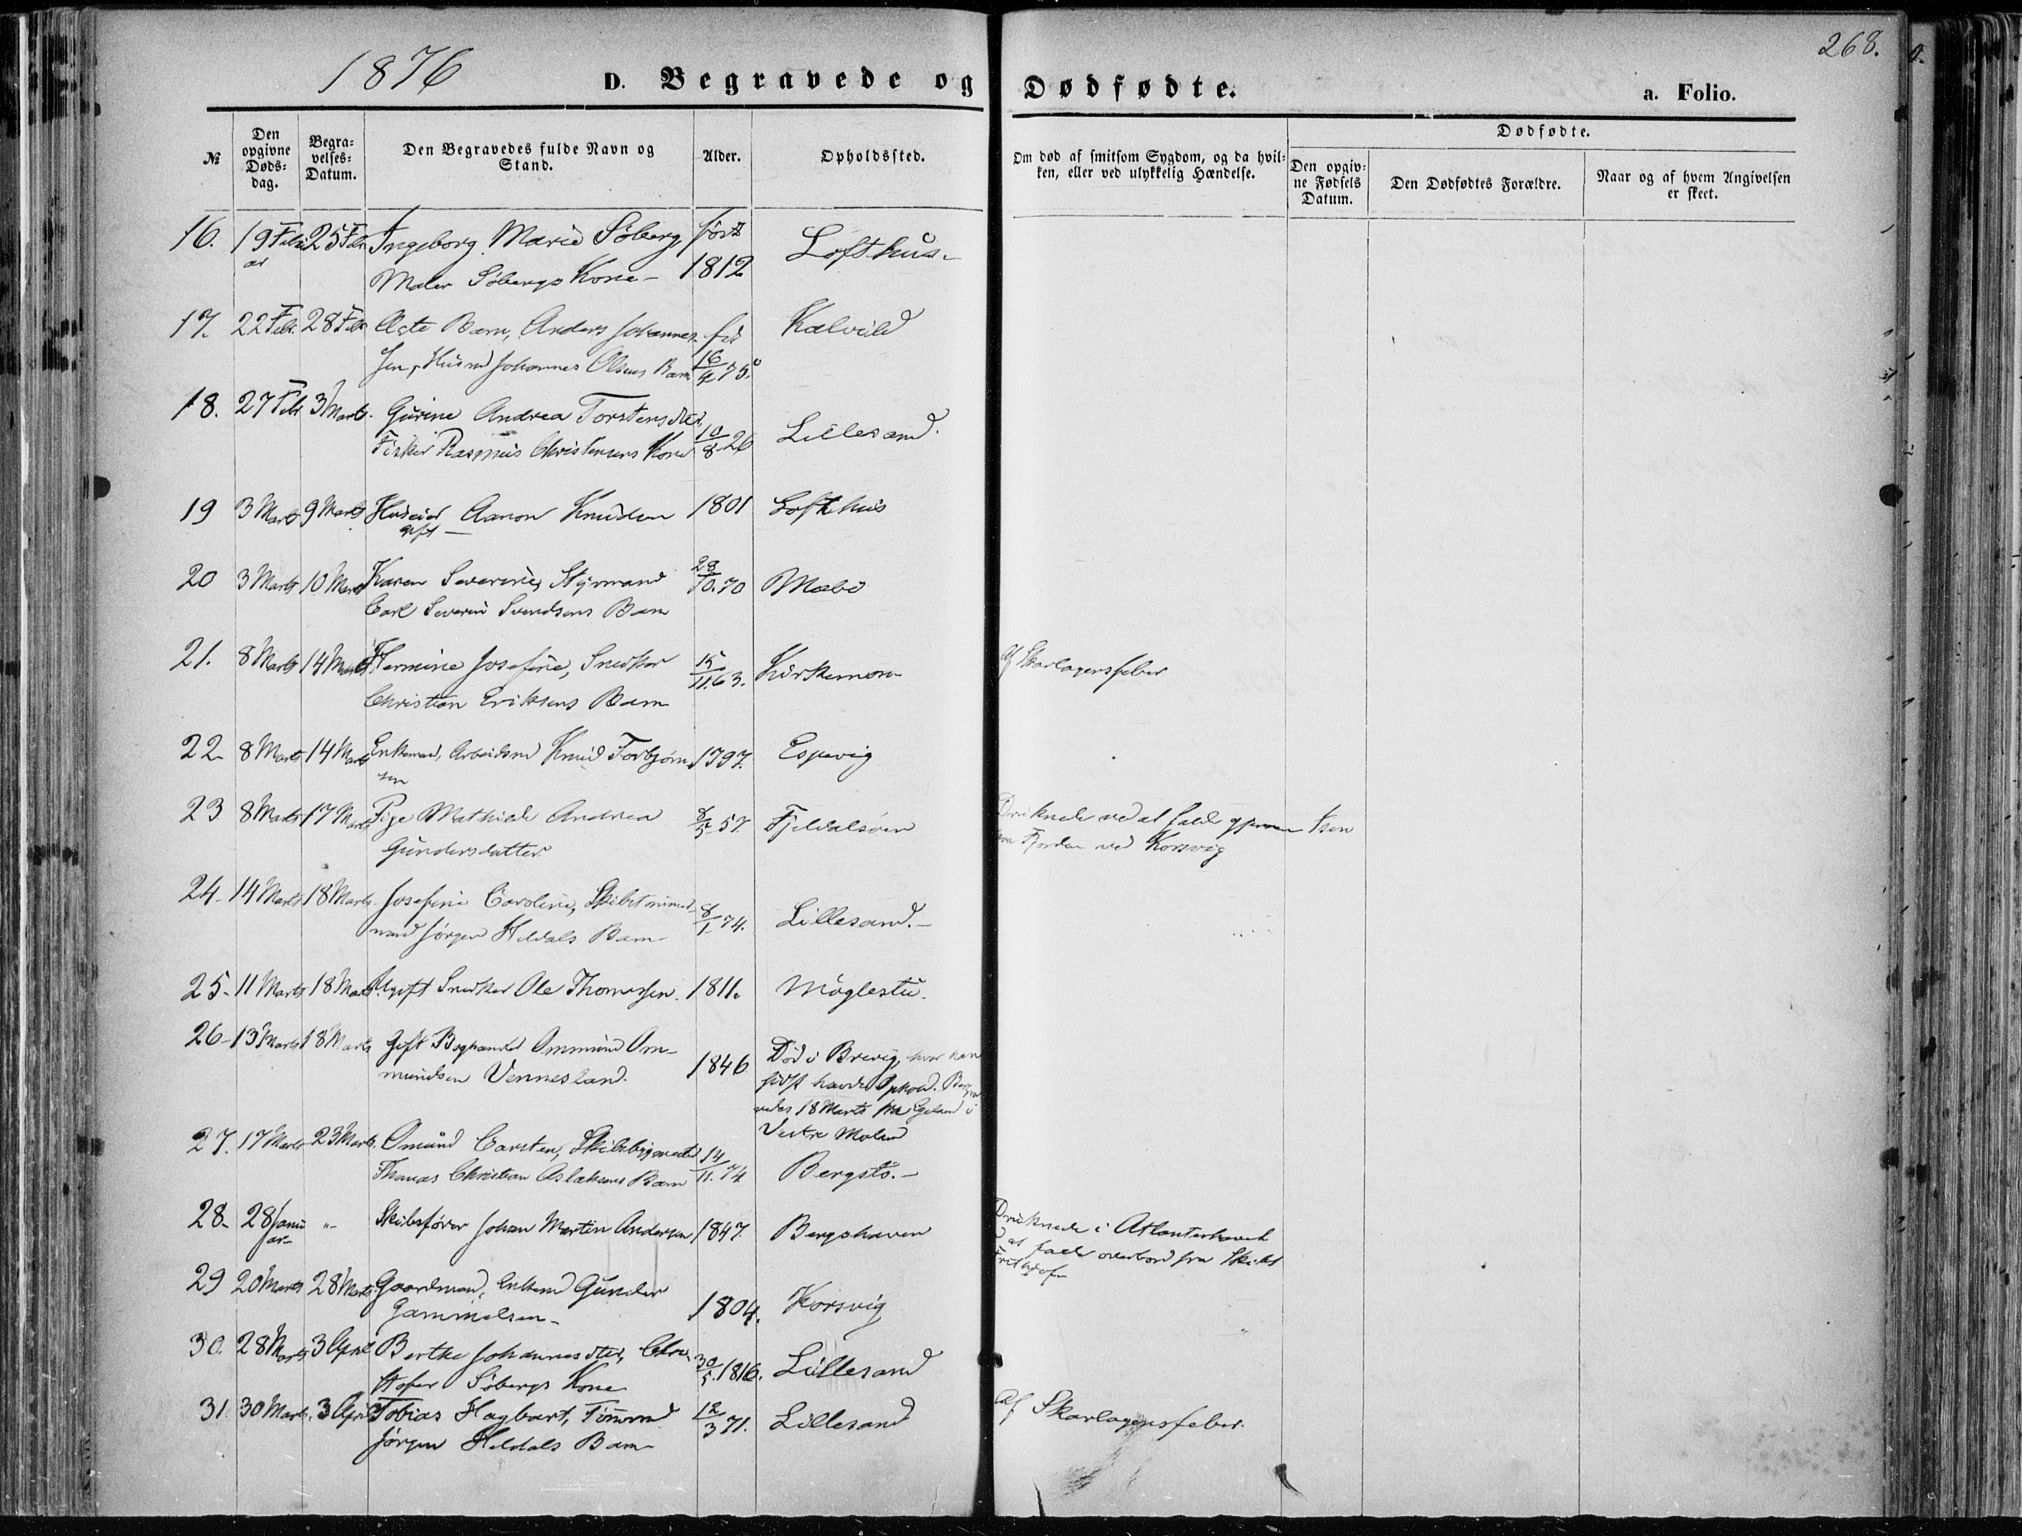 1876
268.
D. Begravede og Dødfødte.
a. Folio.
№
Den opgivne Døds-dag.
Begra-velses-Datum.
Den Begravedes fulde Navn og Stand.
Alder.
Opholdssted.
Om død af smitsom Sygdom, og da hvil-ken, eller ved ulykkelig Hændelse.
Dødfødte.
Den opgiv-ne Fødsels Datum.
Den Dødfødtes Forældre.
Naar og af hvem Angivelsen er skeet.
16. 19 Febr 25 Feb Ingeborg Marie Söberg, født Lofthus
Maler Söbergs Kone 1812
17. 22 Feb. 28 Feb Ægte Barn, Anders Johannes- Kalvild
sen, Husmd Johannes Olsens Barn 75.
18. 27 Feb 3 Marts. Gurine Andrea Torstensdtr. Lillesand.
Fisker Rasmus Christensens Kone 10/8 26
19 3 Marts 9 Marts Huseier Aanon Knudsen 1801 Lofthus
gift
20 3 Marts 10 Marts Karen Severine, Styrmand 28/10. 70 Mæbö
Carl Severin Svendsens Barn
21. 8 Marts 14 Marts Hermine Josefine, Snedker 15/11. 63. Kirkemoen af Skarlagensfeber
Christian Eriksens Barn
22 8 Marts 14 Marts Enkemd, Arbeidsmd Knud Torbjørn 1797. Espevig
sen
23 8 Marts 17 Marts Pige Mathilde Andrea 8/5 57. Fjeldalsøen Druknede ved at falde gjennem Isen
Gundersdatter. paa Fjorden ved Korsvig
24 14 Marts 18 Marts Josefine Caroline, Skibstimmer- 8/1 74. Lillesand.
mand Jørgen Heldals Barn
25 11 Marts 18 Marts Ugift Snedker Ole Thomassen. 1811. Möglestu.
26 13 Marts 18 Marts Gift Boghandl Ommund Om- 1846. Död i Brevig, hvor han
mundsen Vennesland. sidst havde Ophold. Begra
vedes 18 Marts fra Egeland i
Vestre Moland
27. 17 Marts 23 Marts. Omund Carsten, Skibsbygmester 14/11. 74 Bergstö.
Thomas Christian Aslaksens Barn
28. 28 Janu ar " Skibsfører Johan Martin Andersen 1847. Bergshaven Druknede i Atlanterhavet
at falde overbord fra Skibet
Frithjof
29 20 Marts 28 Marts. Gaardmand, Enkemd Gunder 1804. Korsvig
Gammelsen
30. 28 Marts 3 April Berthe Johannesdtr, Chri 30/5. 1816. Lillesand
stofer Söbergs Kone
31. 30 Marts. 3 April Tobias Hagbart, Tømmd 12/3 71. Lillesand Af Skarlagensfeber.
Jørgen Heldals Barn